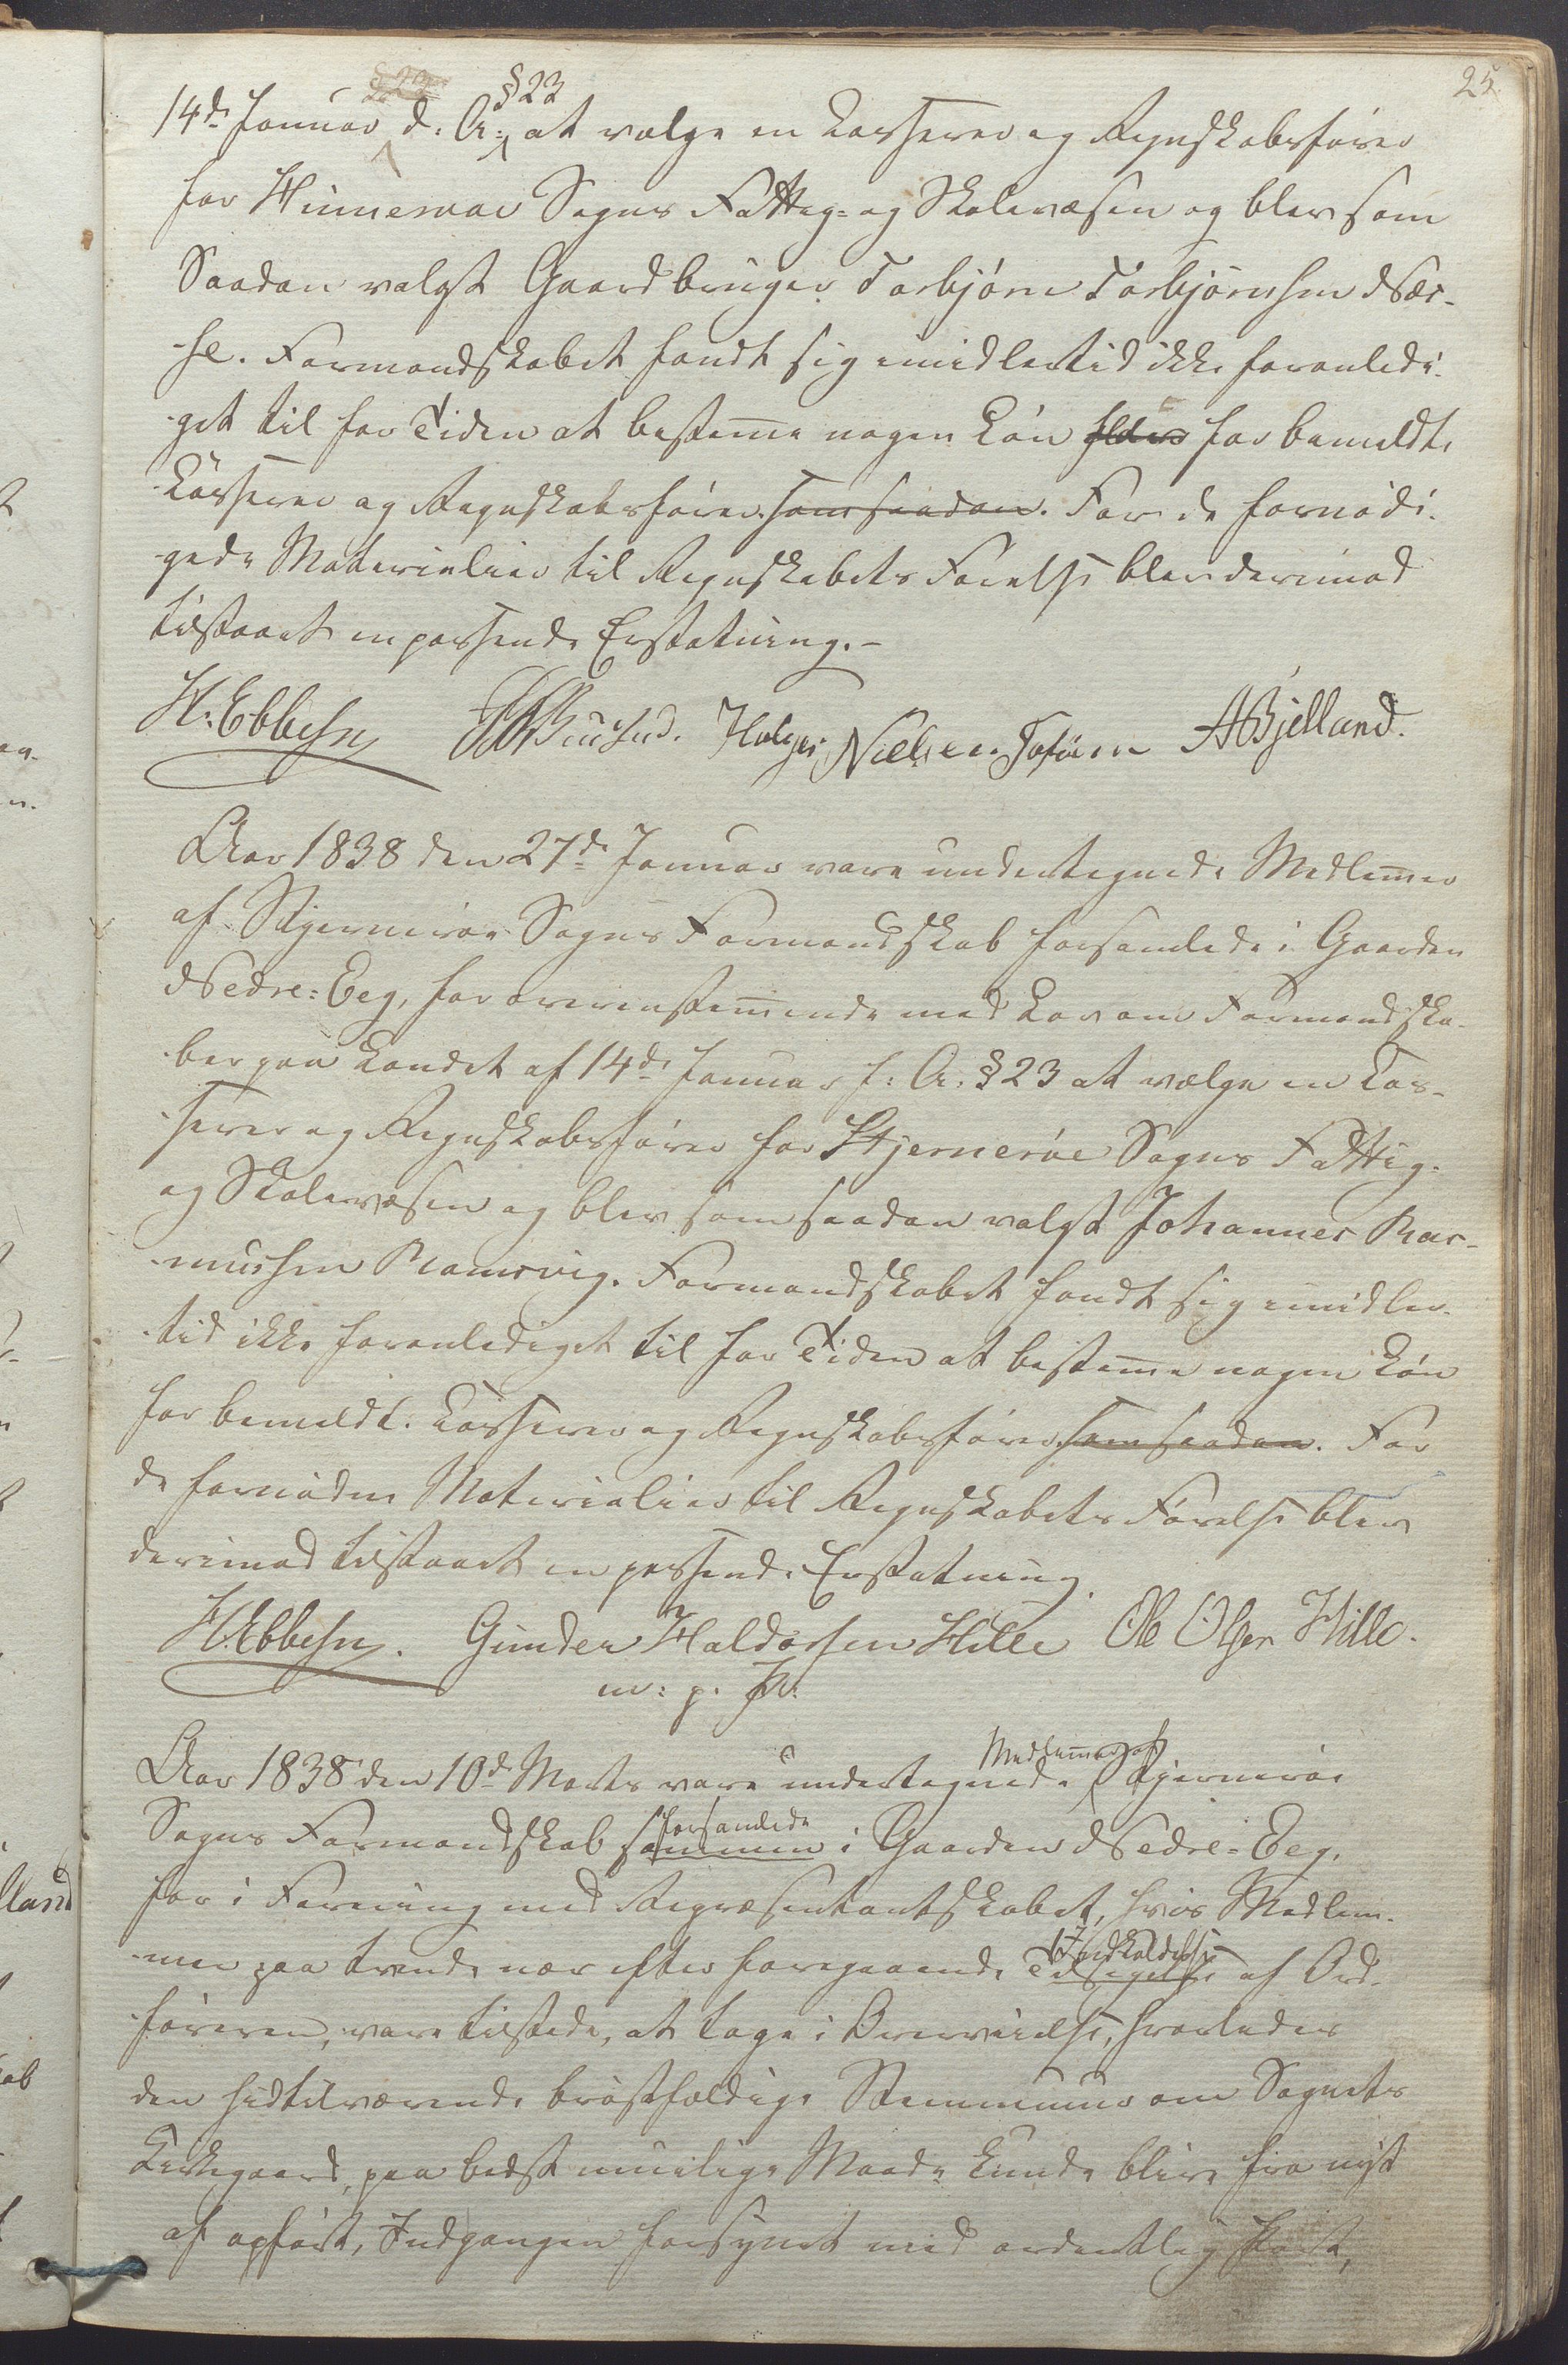 25.
§ 23
14de Januar d: A: § 23 at vælge en Casserer og Regnskabsfører
for Hinnervaa Sogns Fattig- og Skolevæsen og blev som
Saadan valgt Gaardbruger Torbjørn Torbjørnsen Nær-
-se. Formandskabet fandt sig imidlertid ikke foranledi-
-get til for Tiden at bestemme nogen Løn for bemeldte
Casserer og Regnskabsfører som saadan. For de fornødi-
-gede Materialier til Regnskabets Førelse blev derimod
tilstaaet en passende Erstatning.-
H. Ebbesen Holger Nielsen A Bjelland.
Aar 1838 den 27de Januar vare undertegnede Medlemmer
af Stjernerøe Sogns Formandskab forsamlede i Gaarden
Nedre-Eeg, for overensstemmende med Lov om Formandska-
-ber paa Landet af 14de Januar f: A: § 23 at vælge en Cas-
-serer og Regnskabsfører for Stjernerøe Sogns Fattig-
og Skolevæsen og blev som saadan valgt Johannes Ras-
-mussen Ramsvig. Formandskabet fandt sig imidler-
-tid ikke foranlediget til for Tiden at bestemme nogen Løn
for bemeldt. Casserer og Regnskabsfører som saadan. For
de fornødne Materialier til Regnskabets Førelse blev
derimod tilstaaet en passende Erstatning.
H. Ebbesen. Gunder Haldorsen Hille Ole Olsen Hille.
m: p. P:
Aar 1838 den 10de Marts vare undertegnede Medlemmer af Stjernerøe
Sogns Formandskab sammen forsamlede i Gaarden Nedre-Eeg,
for i Forening med Repræsentantskabet, hvis Medlem-
-mer paa trende nær efter foregaaende Tilsigelse Indkaldelse af Ord-
-føreren, vare tilstede, at tage i Overveielse, hvorledes
den hidtilværende brøstfældige Steenmuur om Sognets
Kirkegaard, paa bedst muelige Maade kunde blive fra nyt
af opført, Indgangen forsynet med ordentlig Port,